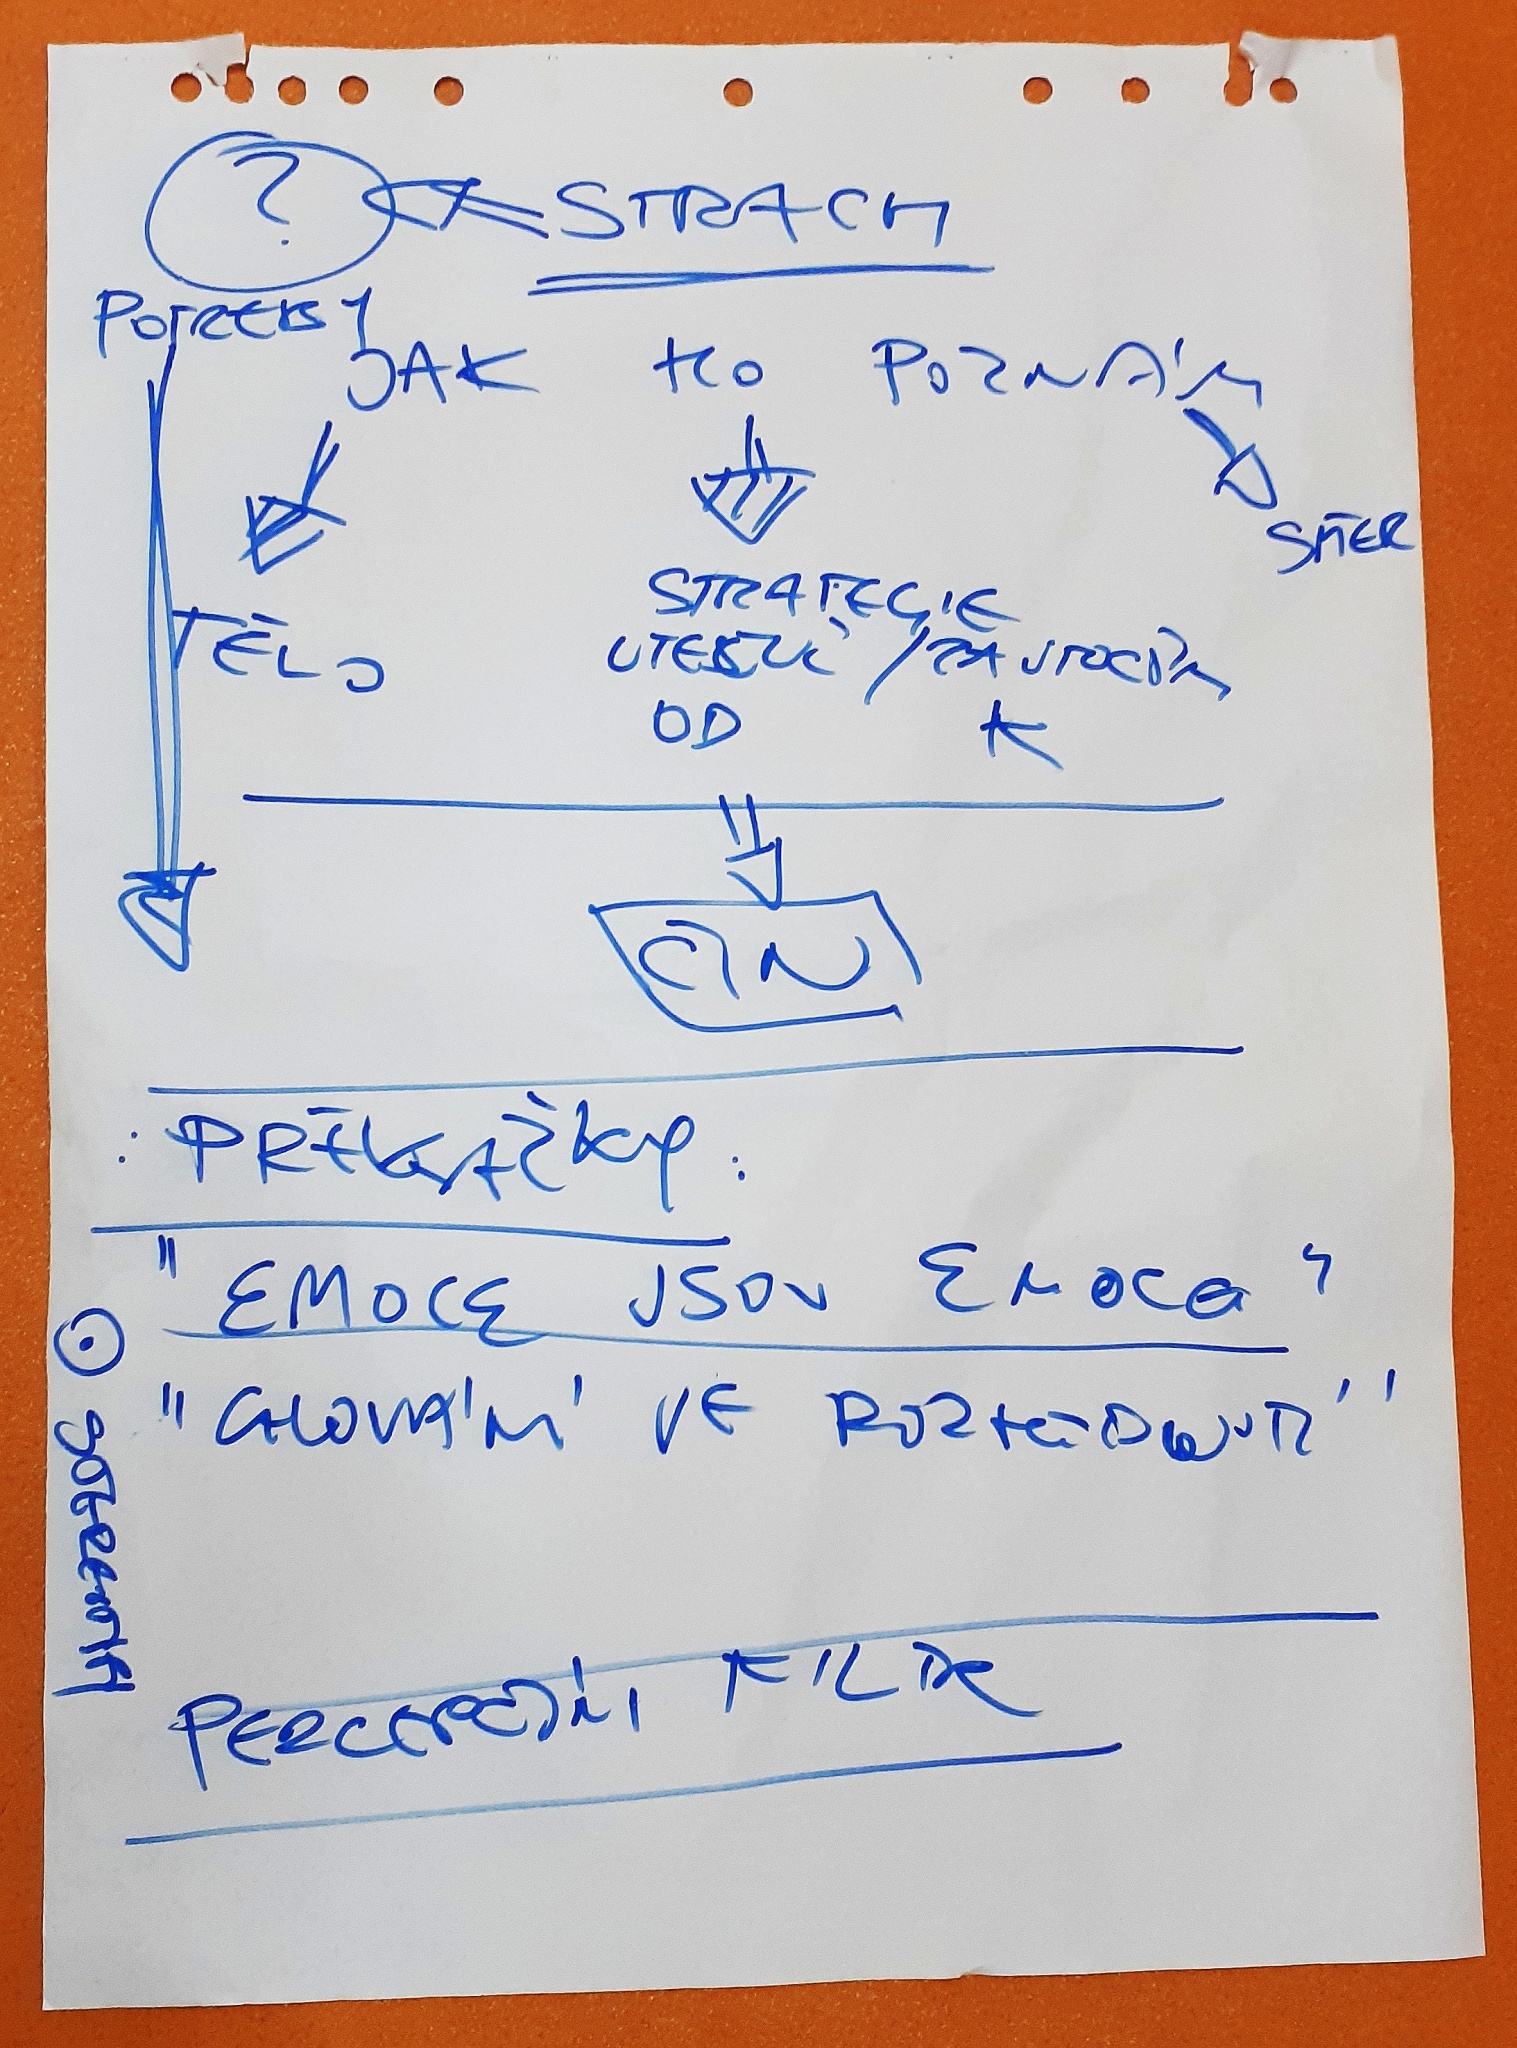 ?
STRACH
POTŘEBY
JAK HO POZNÁM
SMĚR
TĚLO
STRATEGIE
UTEČU / ZAÚTOČÍM
OD K
ČIN
PŘEKÁŽKY:
"EMOCE JSOU EMOCE"
"CHOVÁNÍ JE ROZHODNUTÍ"
PERCEPČNÍ FILTR